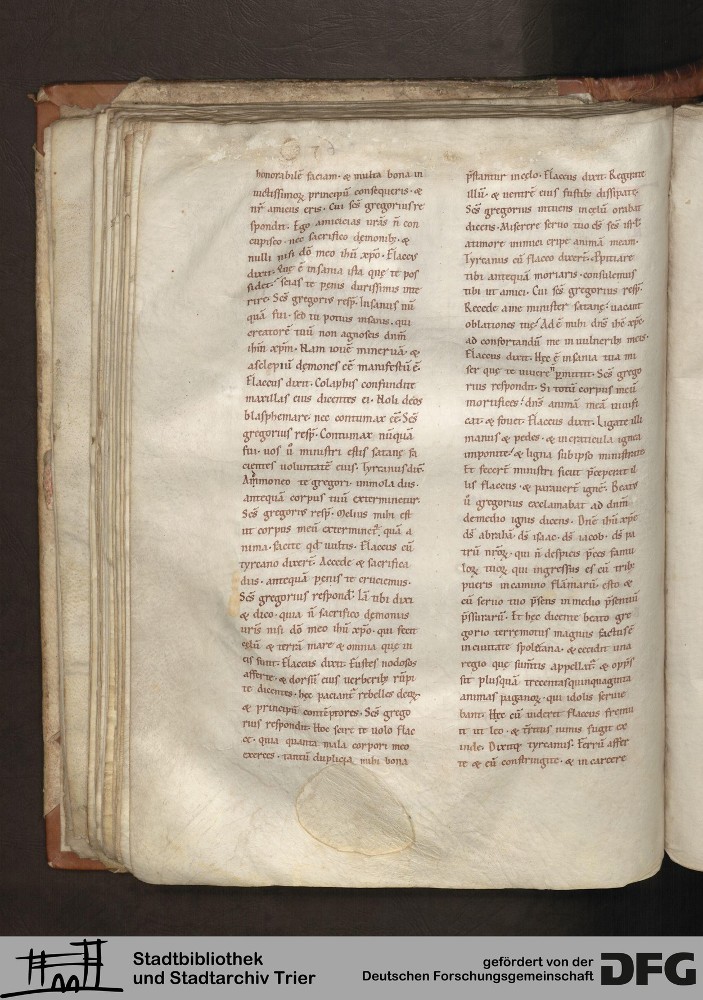 honorabilē faciam · & multa bona in
uictissimoꝝ principū consequeris · &
nr̄ amicus eris. Cui Scs̄ gregorius re
spondit. Ego amicicias ur̄as n̄ con
cupisco · nec sacrifico demonibꝫ · &
nulli nisi dō meo ihū xp̄o. Flaccus
dixit. Quę ē insania ista quę te pos
sidet? scias te pęnis durissimis inte
rire. Scs̄ gregoris resp̄. Insanus nū
quā fui · sed tu potius insanis · qui
creatorē tuū non agnoscis dnm̄
ihm̄ xpm̄. Nam iouē mineruā · &
asclepiū demones eē manifestū ē.
Flaccus dixit. Colaphis confundite
maxillas eius dicentes ei. Noli deos
blasphemare · nec contumax eē. Scs̄
gregorius resp̄. Contumax nūquā
fui · uos ū ministri estis satanę fa
cientes uoluntatē eius. Tyreanus dix̄.
Ammoneo te gregori · immola diis ·
antequā corpus tuū exterminetur.
Scs̄ gregoris resp̄. Melius mihi est
ut corpus meū exterminet᷑ · quā a
nima · facite qd̄ uultis. Flaccus cū
tyreano dixer̄t. Accede & sacrifica
diis · antequā pęnis te cruciemus.
Scs̄ gregorius respond̄. Iā tibi dixi
& dico · quia n̄ sacrifico demoniis
uris̄ nisi dō meo ihū xp̄o · qui fecit
cęlū & terrā mare & omnia quę in
eis sunt. Flaccus dixit. Fustes nodosos
afferte · & dorsū eius uerberibꝫ rūpi
te dicentes · hęc paciant᷑ rebelles deoꝝ
& principū contēptores. Scs̄ grego
rius respondit. Hoc scire te uolo flac
ce · quia quanta mala corpori meo
exerces · tantū duplicia mihi bona
p̄stantur in cęlo. Flaccus dixit. Regirate
illū · & uentrē eius fustibꝫ dissipate.
Scs̄ gregorius intuens in cęlū orabat
dicens. Miserere seruo tuo ds̄ scs̄ isrl̄
a timore inimici eripe animā meam.
Tyreanus cū flacco dixer̄t.
tibi antequā moriaris · consulemus
tibi ut amici. Cui scs̄ gregorius resp̄.
Recede a me minister satanę · uacant
oblationes tuę. Adē mihi dns̄ ihc̄ xpc̄
ad confortandū me in uulneribꝫ meis.
Flaccus dixit. Hęc ē insania tua mi
ser quę te uiuere n̄ p̄mittit. Scs̄ grego
rius respondit. Si totū corpus meū
mortifices · dns̄ animā meā uiuifi
cat · & fouet. Flaccus dixit. Ligate illi
manus & pedes · & in craticula ignea
imponite · & ligna sub ipso ministrate.
Et fecerē ministri sicut p̄ceperat il
lis flaccus · & parauer̄t ignē. Beatꝰ
ū gregorius exclamabat ad dnm̄
de medio ignis dicens. Dnē ihū xpē
ds̄ abrahā · ds̄ isaac · ds̄ iacob · ds̄ pa
trū nr̄oꝝ · qui n̄ despicis p̄ces famu
loꝝ tuoꝝ · qui ingressus es cū tribꝫ
pueris in camino flāmarū · esto &
cū seruo tuo p̄sens in medio p̄sentiū
p̄ssurarū. Et hęc dicente beato gre
gorio terremotus magnus factus ē
in ciuitate spoletana · & cecidit una
regio quę sumtis appellat᷑ · & opp̄s
sit plusquā trecentas quinquaginta
animas paganoꝝ · qui idolis seruie
bant. Hęc cū uideret flaccus fremu
it ut leo · & t̄ritus nimis fugit ex
inde. Dixitqꝫ tyreanus. Ferrū affer
te & cū constringite · & in carcere
Stadtbibliothek
und Stadtarchiv Trier
gefördert von der
Deutschen Forschungsgemeinschaft
DFG